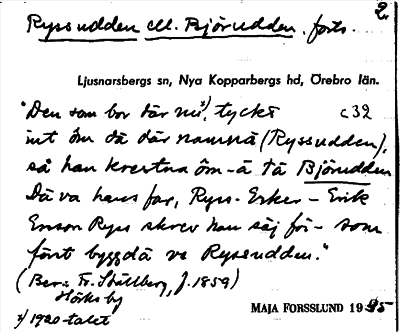 2.
Ryssudden ell. Björudden. forts.
Ljusnarsbergs sn, Nya Kopparbergs hd, Örebro län.
"Den som bor där nu x), tyckt c 32
int öm dä där namnä (Ryssudden),
så han krestna öm-ä tä Björudden
Dä va hans far, Ryss-Erker - Erik
Ersson Ryss skrev han säj för - som
först byggdä ve Ryssudden."
(Ber: Fr. Stållberg, f. 1859)
Hörks by
x) 1920-talet
MAJA FORSSLUND 1935